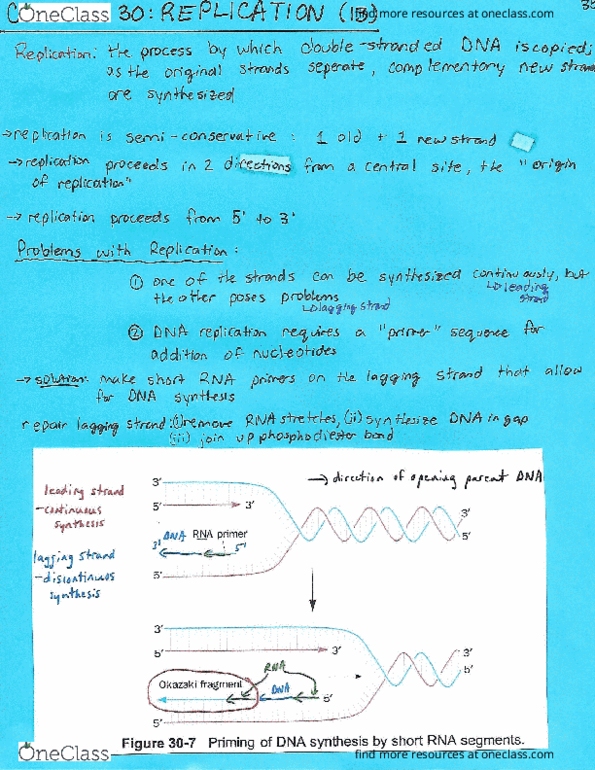 30: REPLICATION (13)
find more resources at oneclass.com
OneClass
Replication: the process by which double-stranded DNA is copied;
as the original strands seperate, complementory new
are synthesized
→ replication is semi-conservative: 1 old + 1 new strand
→ replication proceeds in 2 directions from a central site, the "origin
of replication"
→ replication proceeds from 5' to 3'
Problems with Replication:
① one of the strands can be synthesized continuously, but
↳ leading
strand
the other poses problems
↳ lagging strand
② DNA replication requires a "primer" sequence for
addition of nucleotides
→ solution: make short RNA primers on the lagging strand that allow
for DNA synthesis
repair lagging strand: (i) remove RNA stretches, (ii) synthesize DNA in gap
(iii) join up phosphodiester bond
→ direction of opening parent DNA
leading strand
- continuous
synthesis
3'
5'
3'
3'
5'
DNA RNA primer
3' 5'
5'
lagging strand
- discontinous
synthesis
3'
5'
3'
3'
5'
RNA
Okazaki fragment
DNA
5'
5'
Figure 30-7 Priming of DNA synthesis by short RNA segments.
OneClass
find more resources at oneclass.com